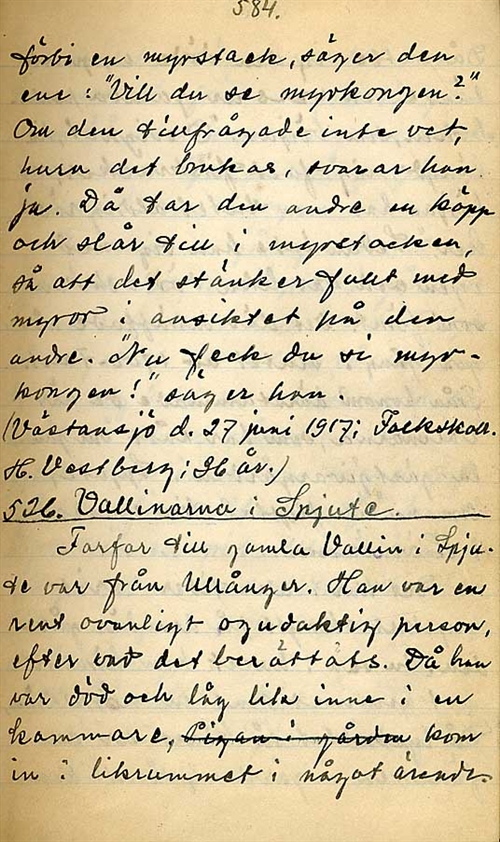 584.
förbi en myrstack, säger den
ene: "Vill du se myrkongen?"
Om den tillfrågade inte vet,
huru det brukas, svarar han
ja. Då tar den andre en käpp
och slår till i myrstacken,
så att det stänker fullt med
myror i ansiktet på den
andre. "Nu feck du si myr-
kongen!" säger han.
(Västansjö d. 27 juni 1917; Folkskoll.
H. Vestberg; 26 år.)
526. Vallinarna i Spjute.
Farfar till gamla Vallin i Spju-
te var från Ullånger. Han var en
rent ovanligt ogudaktig person,
efter vad det berättats. Då han
var död och låg lik inne i en
kammare, pigan i gården kom
in i likrummet i något ärende.